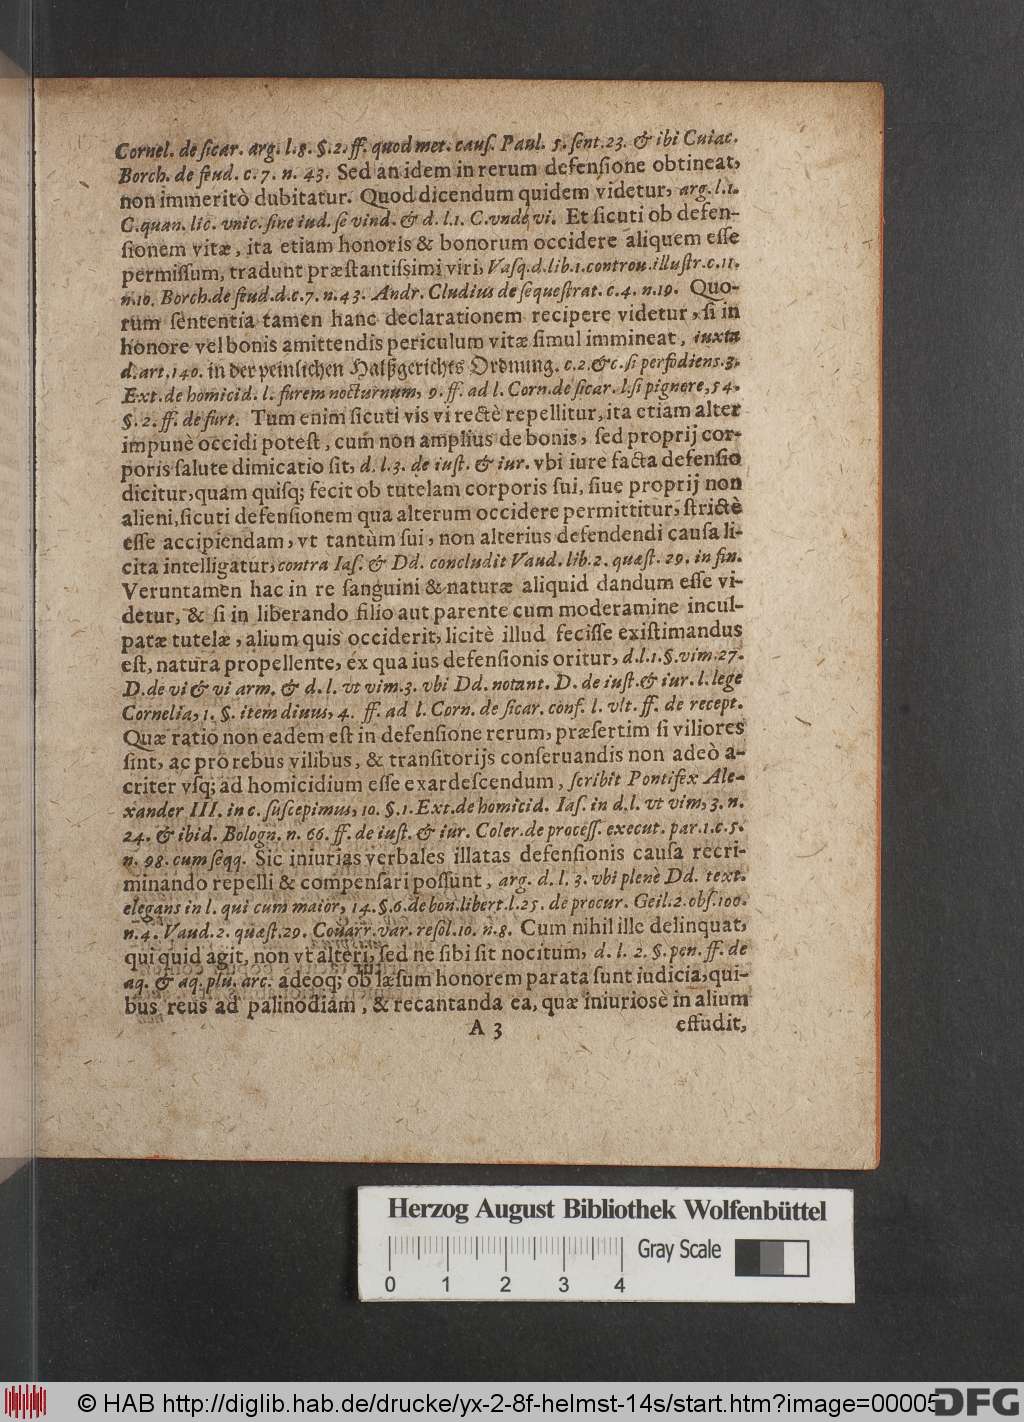 Cornel. de ſicar. arg. l. 8. §. 2. ff. quod met. cauſ. Paul. 5. ſent. 23. & ibi Cuiac.
Borch. de feud. c. 7. n. 43. Sed an idem in rerum defenſione obtineat,
non immeritò dubitatur. Quod dicendum quidem videtur, arg. l. 1.
C. quan. lic. vnic. ſine iud. ſe vind. & d. l. 1. C. vnde vi. Et ſicuti ob defen-
ſionem vitæ, ita etiam honoris & bonorum occidere aliquem eſſe
permiſſum, tradunt præſtantiſsimi viri, Vaſq. d. lib. 1. controu. illuſtr. c. 11.
n. 16. Borch. de feud. d. c. 7. n. 43. Andr. Cludius de ſequeſtrat. c. 4. n. 19. Quo-
rum ſententia tamen hanc declarationem recipere videtur, ſi in
honore vel bonis amittendis periculum vitæ ſimul immineat, iuxta
d. art. 140. in der peinlichen Halßgerichts Ordnung. c. 2. &c. ſi perfodiens. 3.
Ext. de homicid. l. furem nocturnum, 9. ff. ad l. Corn. de ſicar. l. ſi pignore, 54.
§. 2. ff. de furt. Tum enim ſicuti vis vi rectè repellitur, ita etiam alter
impunè occidi poteſt, cum non amplius de bonis, ſed proprij cor-
poris ſalute dimicatio ſit, d. l. 3. de iuſt. & iur. vbi iure facta defenſio
dicitur, quam quiſq; fecit ob tutelam corporis ſui, ſiue proprij non
alieni, ſicuti defenſionem qua alterum occidere permittitur, ſtrictè
eſſe accipiendam, vt tantùm ſui, non alterius defendendi cauſa li-
cita intelligatur, contra Iaſ. & Dd. concludit Vaud. lib. 2. quæſt. 29. in fin.
Veruntamen hac in re ſanguini & naturæ aliquid dandum eſſe vi-
detur, & ſi in liberando filio aut parente cum moderamine incul-
patæ tutelæ, alium quis occiderit, licitè illud feciſſe exiſtimandus
eſt, natura propellente, ex qua ius defenſionis oritur, d. l. 1. §. vim. 27.
D. de vi & vi arm. & d. l. vt vim. 3. vbi Dd. notant. D. de iuſt. & iur. l. lege
Cornelia, 1. §. item diuus, 4. ff. ad l. Corn. de ſicar. conf. l. vlt. ff. de recept.
Quæ ratio non eadem eſt in defenſione rerum, præſertim ſi viliores
ſint, ac pro rebus vilibus, & tranſitorijs conſeruandis non adeò a-
criter vſq; ad homicidium eſſe exardeſcendum, ſcribit Pontifex Ale-
xander III. in c. ſuſcepimus, 10. §. 1. Ext. de homicid. Iaſ. in d. l. vt vim, 3. n.
24. & ibid. Bologn. n. 66. ff. de iuſt. & iur. Coler. de proceſſ. execut. par. 1. c. 5.
n. 98. cum ſeqq. Sic iniurias verbales illatas defenſionis cauſa recri-
minando repelli & compenſari poſſunt, arg. d. l. 3. vbi plenè Dd. text.
elegans in l. qui cum maior, 14. §. 6. de bon. libert. l. 25. de procur. Geil. 2. obſ. 100.
n. 4. Vaud. 2. quæſt. 29. Couarr. var. reſol. 10. n. 8. Cum nihil ille delinquat,
qui quid agit, non vt alteri, ſed ne ſibi ſit nocitum, d. l. 2. §. pen. ff. de
aq. & aq. plu. arc. adeoq; ob læſum honorem parata ſunt iudicia, qui-
bus reus ad palinodiam, & recantanda ea, quæ iniuriosè in alium
A 3 effudit,
Herzog August Bibliothek Wolfenbüttel
Gray Scale
0 1 2 3 4
© HAB http://diglib.hab.de/drucke/yx-2-8f-helmst-14s/start.htm?image=00005
DFG